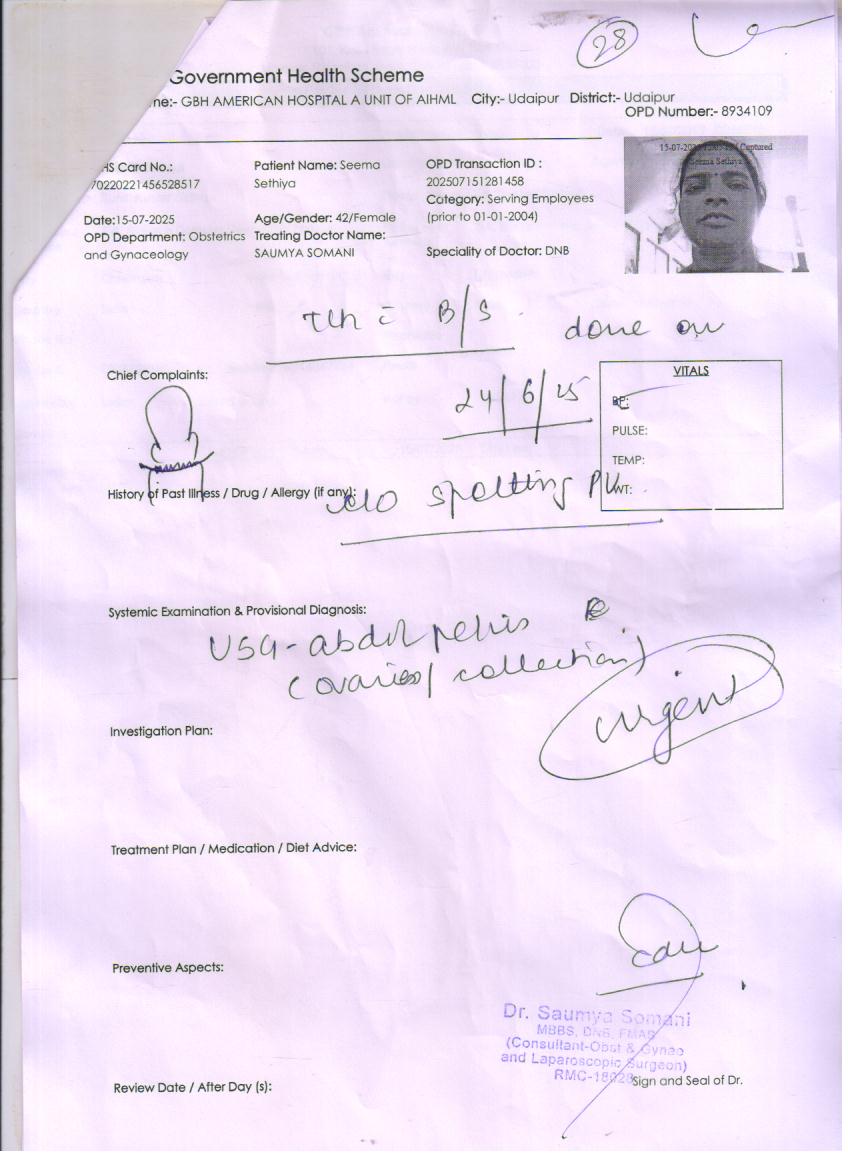 28
Government Health Scheme
ne:- GBH AMERICAN HOSPITAL A UNIT OF AIHML City:- Udaipur District:- Udaipur
OPD Number:- 8934109
HS Card No.:
70220221456528517
Patient Name: Seema
Sethiya
OPD Transaction ID :
202507151281458
Category: Serving Employees
(prior to 01-01-2004)
Captured
Seema Sethiya
Date:15-07-2025
OPD Department: Obstetrics
and Gynaceology
Age/Gender: 42/Female
Treating Doctor Name:
SAUMYA SOMANI
Speciality of Doctor: DNB
B/S done on
24/6/25
Chief Complaints:
VITALS
BP:
PULSE:
TEMP:
WT:
History of Past Illness / Drug / Allergy (if any):
spotting PV
Systemic Examination & Provisional Diagnosis:
USG- abdo/pelvis
(ovaries/collection)
urgent
Investigation Plan:
Treatment Plan / Medication / Diet Advice:
Preventive Aspects:
Dr. Saumya Somani
MBBS, DNB, FMAS
(Consultant-Obst & Gynae
and Laparoscopic Surgeon)
Sign and Seal of Dr.
Review Date / After Day (s):